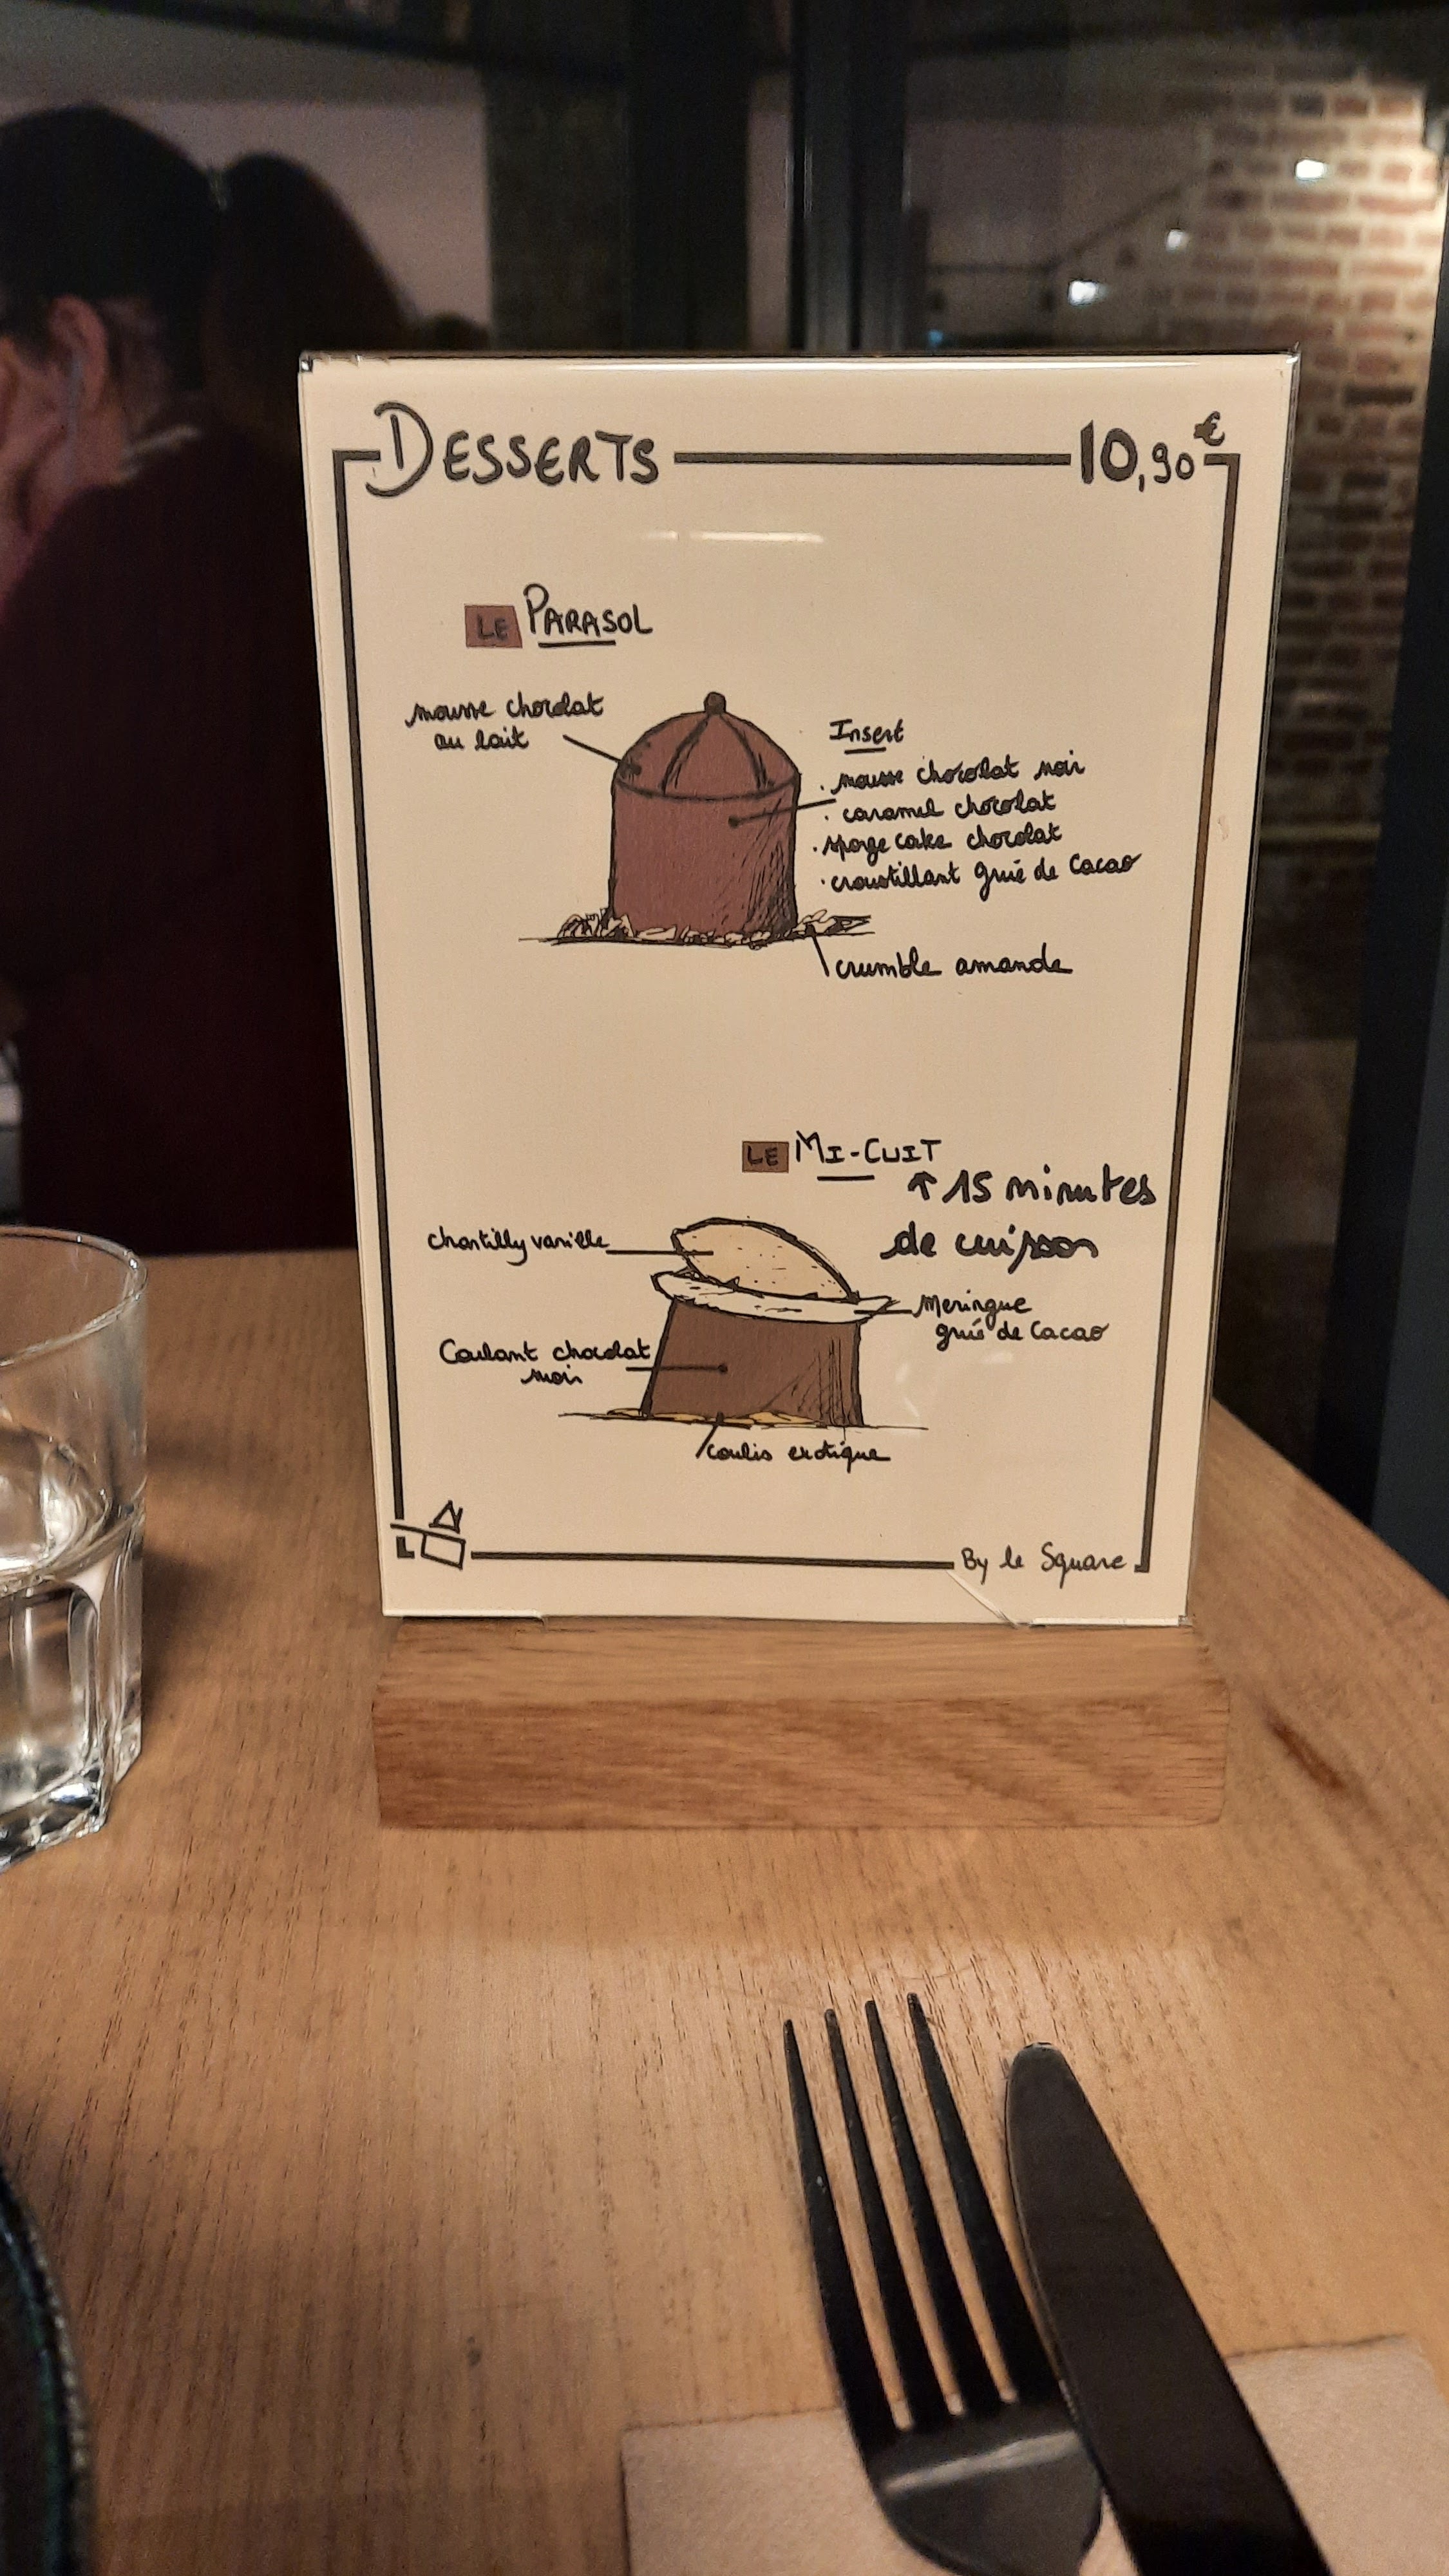 DESSERTS 10,90€
LE PARASOL
mousse chocolat
au lait
Insert
. mousse chocolat noir
. caramel chocolat
. sponge cake chocolat
. croustillant grué de Cacao
crumble amande
LE MI-CUIT
↑ 15 minutes
de cuisson
chantilly vanille
Meringue
grué de Cacao
Coulant chocolat
noir
coulis exotique
L
By le Square